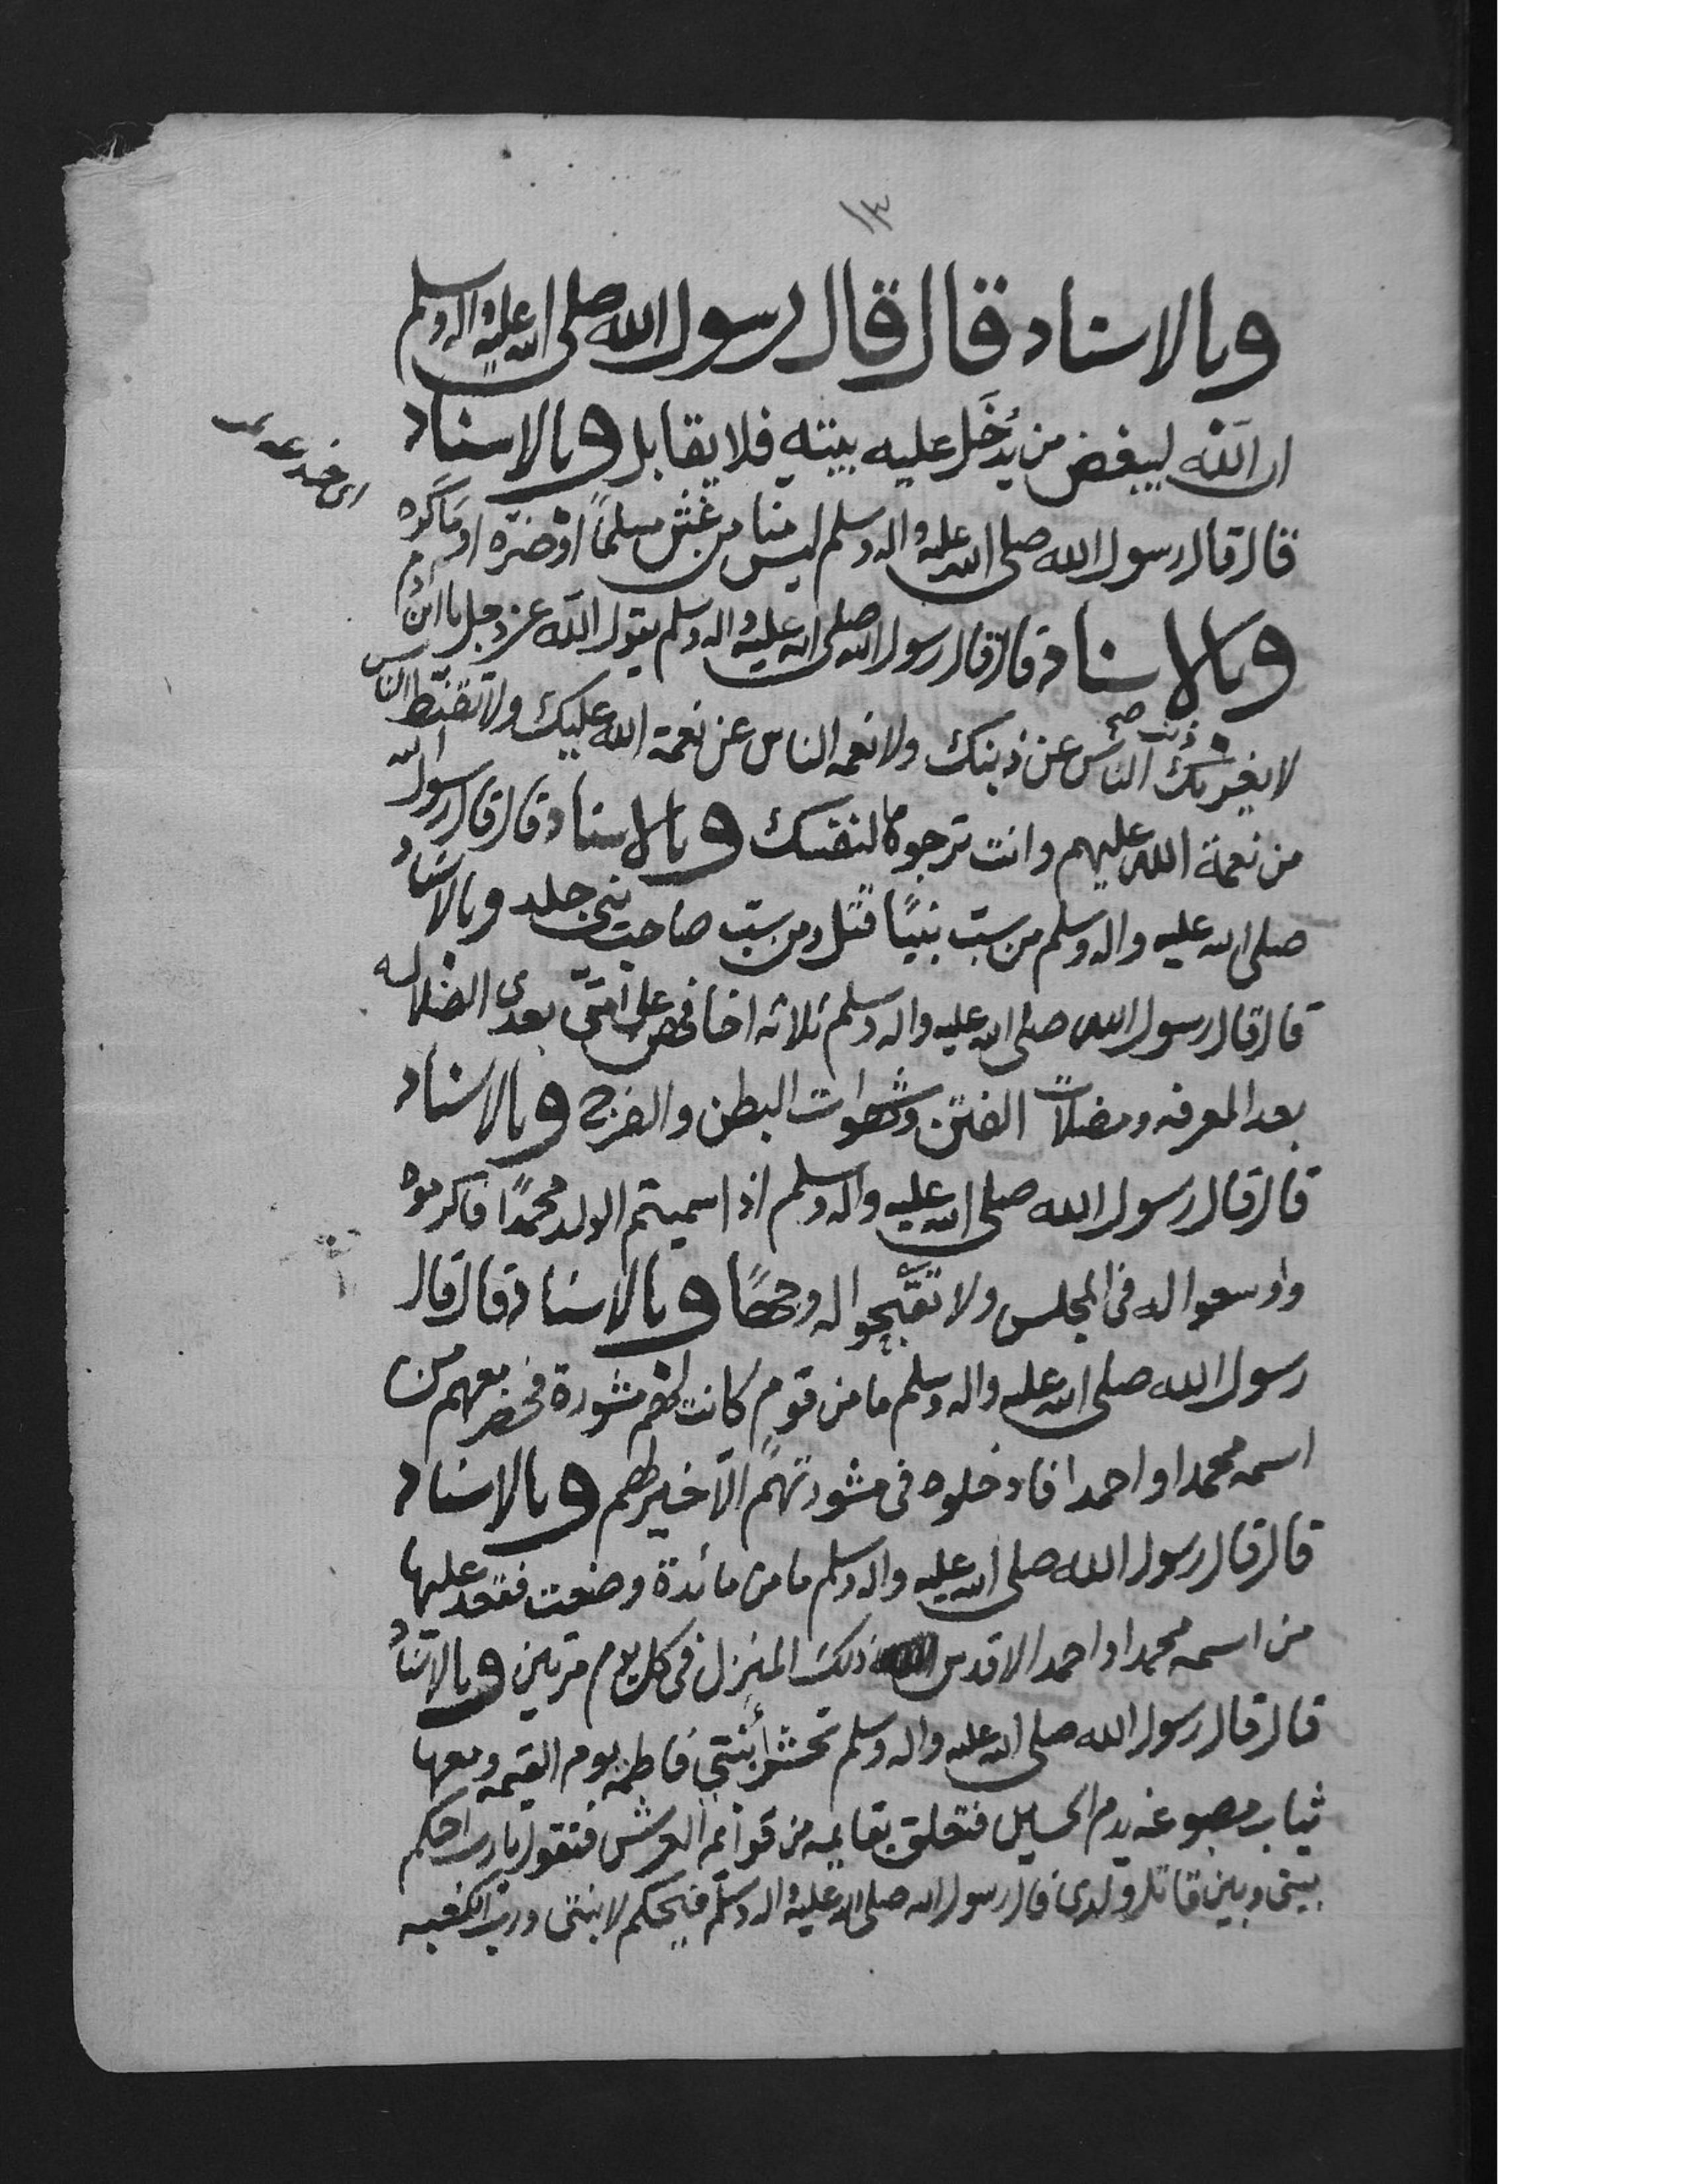 ١٣
وبالاسناد قال قال رسول الله صلى الله عليه واله وسلم
ان الله ليبغض من يُدخَل عليه بيته فلا يقاتل وبالاسناد
اى خدعه
قال قال رسول الله صلى الله عليه واله وسلم ليس منا من غش مسلمًا او ضرّه او مَاكَره
وبالاسناد قال قال رسول الله صلى الله عليه واله وسلم يقول الله عز وجل يا ابن آدم
لا يغرنك ذنب صح الناس عن ذنبك ولا نعمه الناس عن نعمة الله عليك ولا تقنّط الناس
من نعمة الله عليهم وانت ترجوها لنفسك وبالاسناد قال قال رسول الله
صلى الله عليه واله وسلم من سبّ نبيًا قتل ومن سبّ صاحب نبي جلد وبالاسناد
قال قال رسول الله صلى الله عليه واله وسلم ثلاثه اخافهن على امّتي بعدى الضلاله
بعد المعرفه ومضلات الفتن وشهوات البطن والفرج وبالاسناد
قال قال رسول الله صلى الله عليه واله وسلم اذا سميتم الولد محمدًا فاكرموه
واوسعوا له فى المجلس ولا تقبّحوا له وجهًا وبالاسناد قال قال
رسول الله صلى الله عليه واله وسلم ما من قوم كانت لهم مشورة فحضر معهم من
اسمه محمد او احمد فادخلوه فى مشورتهم الّا خير لهم وبالاسناد
قال قال رسول الله صلى الله عليه واله وسلم ما من مائدة وضعت فقعد عليها
من اسمه محمد او احمد الا قدس ذلك المنزل فى كل يوم مرتين وبالاسناد
قال قال رسول الله صلى الله عليه واله وسلم تحشر ابنتي فاطمه يوم القيمه ومعها
ثياب مصبوغه بدم الحسين فتعلق بقايمه من قوائم العرش فتقول يا رب احكم
بينى وبين قاتل ولدى قال رسول الله صلى الله عليه واله وسلم فيحكم لابنتى ورب الكعبه